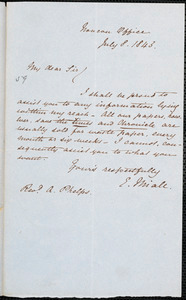 Noncon Office
July 8. 1843.
My dear Sir/
59
I shall be proud to
assist you to any information lying
within my reach - All our papers, how-
ever, save the Times and Chronicle are
usually sold for waste paper, every
month or six weeks - I cannot, con-
sequently assist you to what you
want.
Yours respectfully
E. Miall.
Revd. A. Phelps.